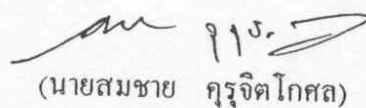 (นายสมชาย คุรุจิตโกศล)